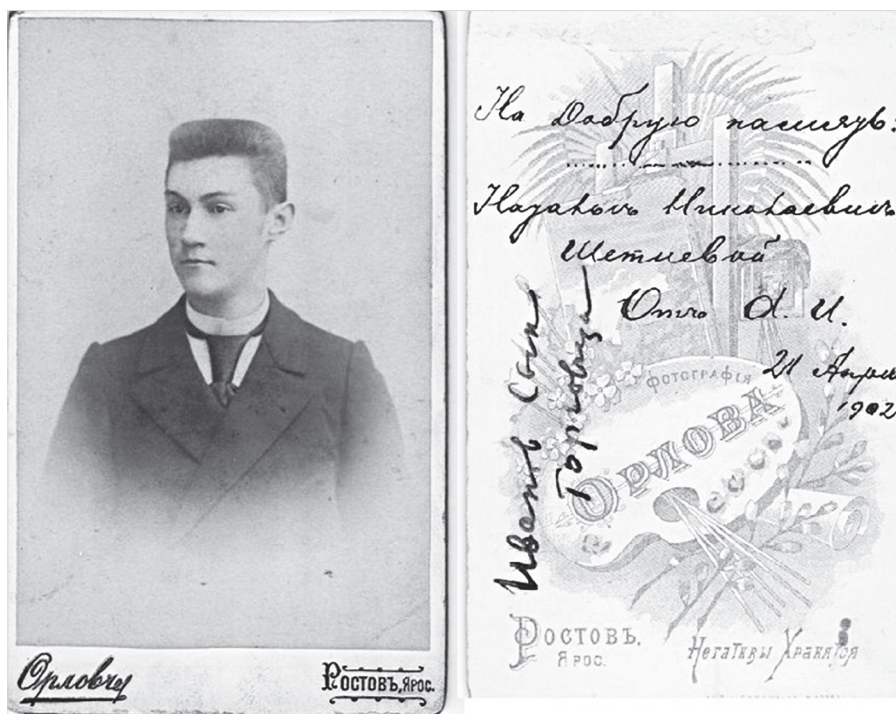 Орловъ
Ростовъ, Ярос.
На Добрую память:
Николаевичъ
Отъ А. И.
21 Апрел
1902
Иванъ Сын
Торговца
ФОТОГРАФІЯ
ОРЛОВА
РОСТОВЪ,
ЯРОС.
Негативы Хранятся